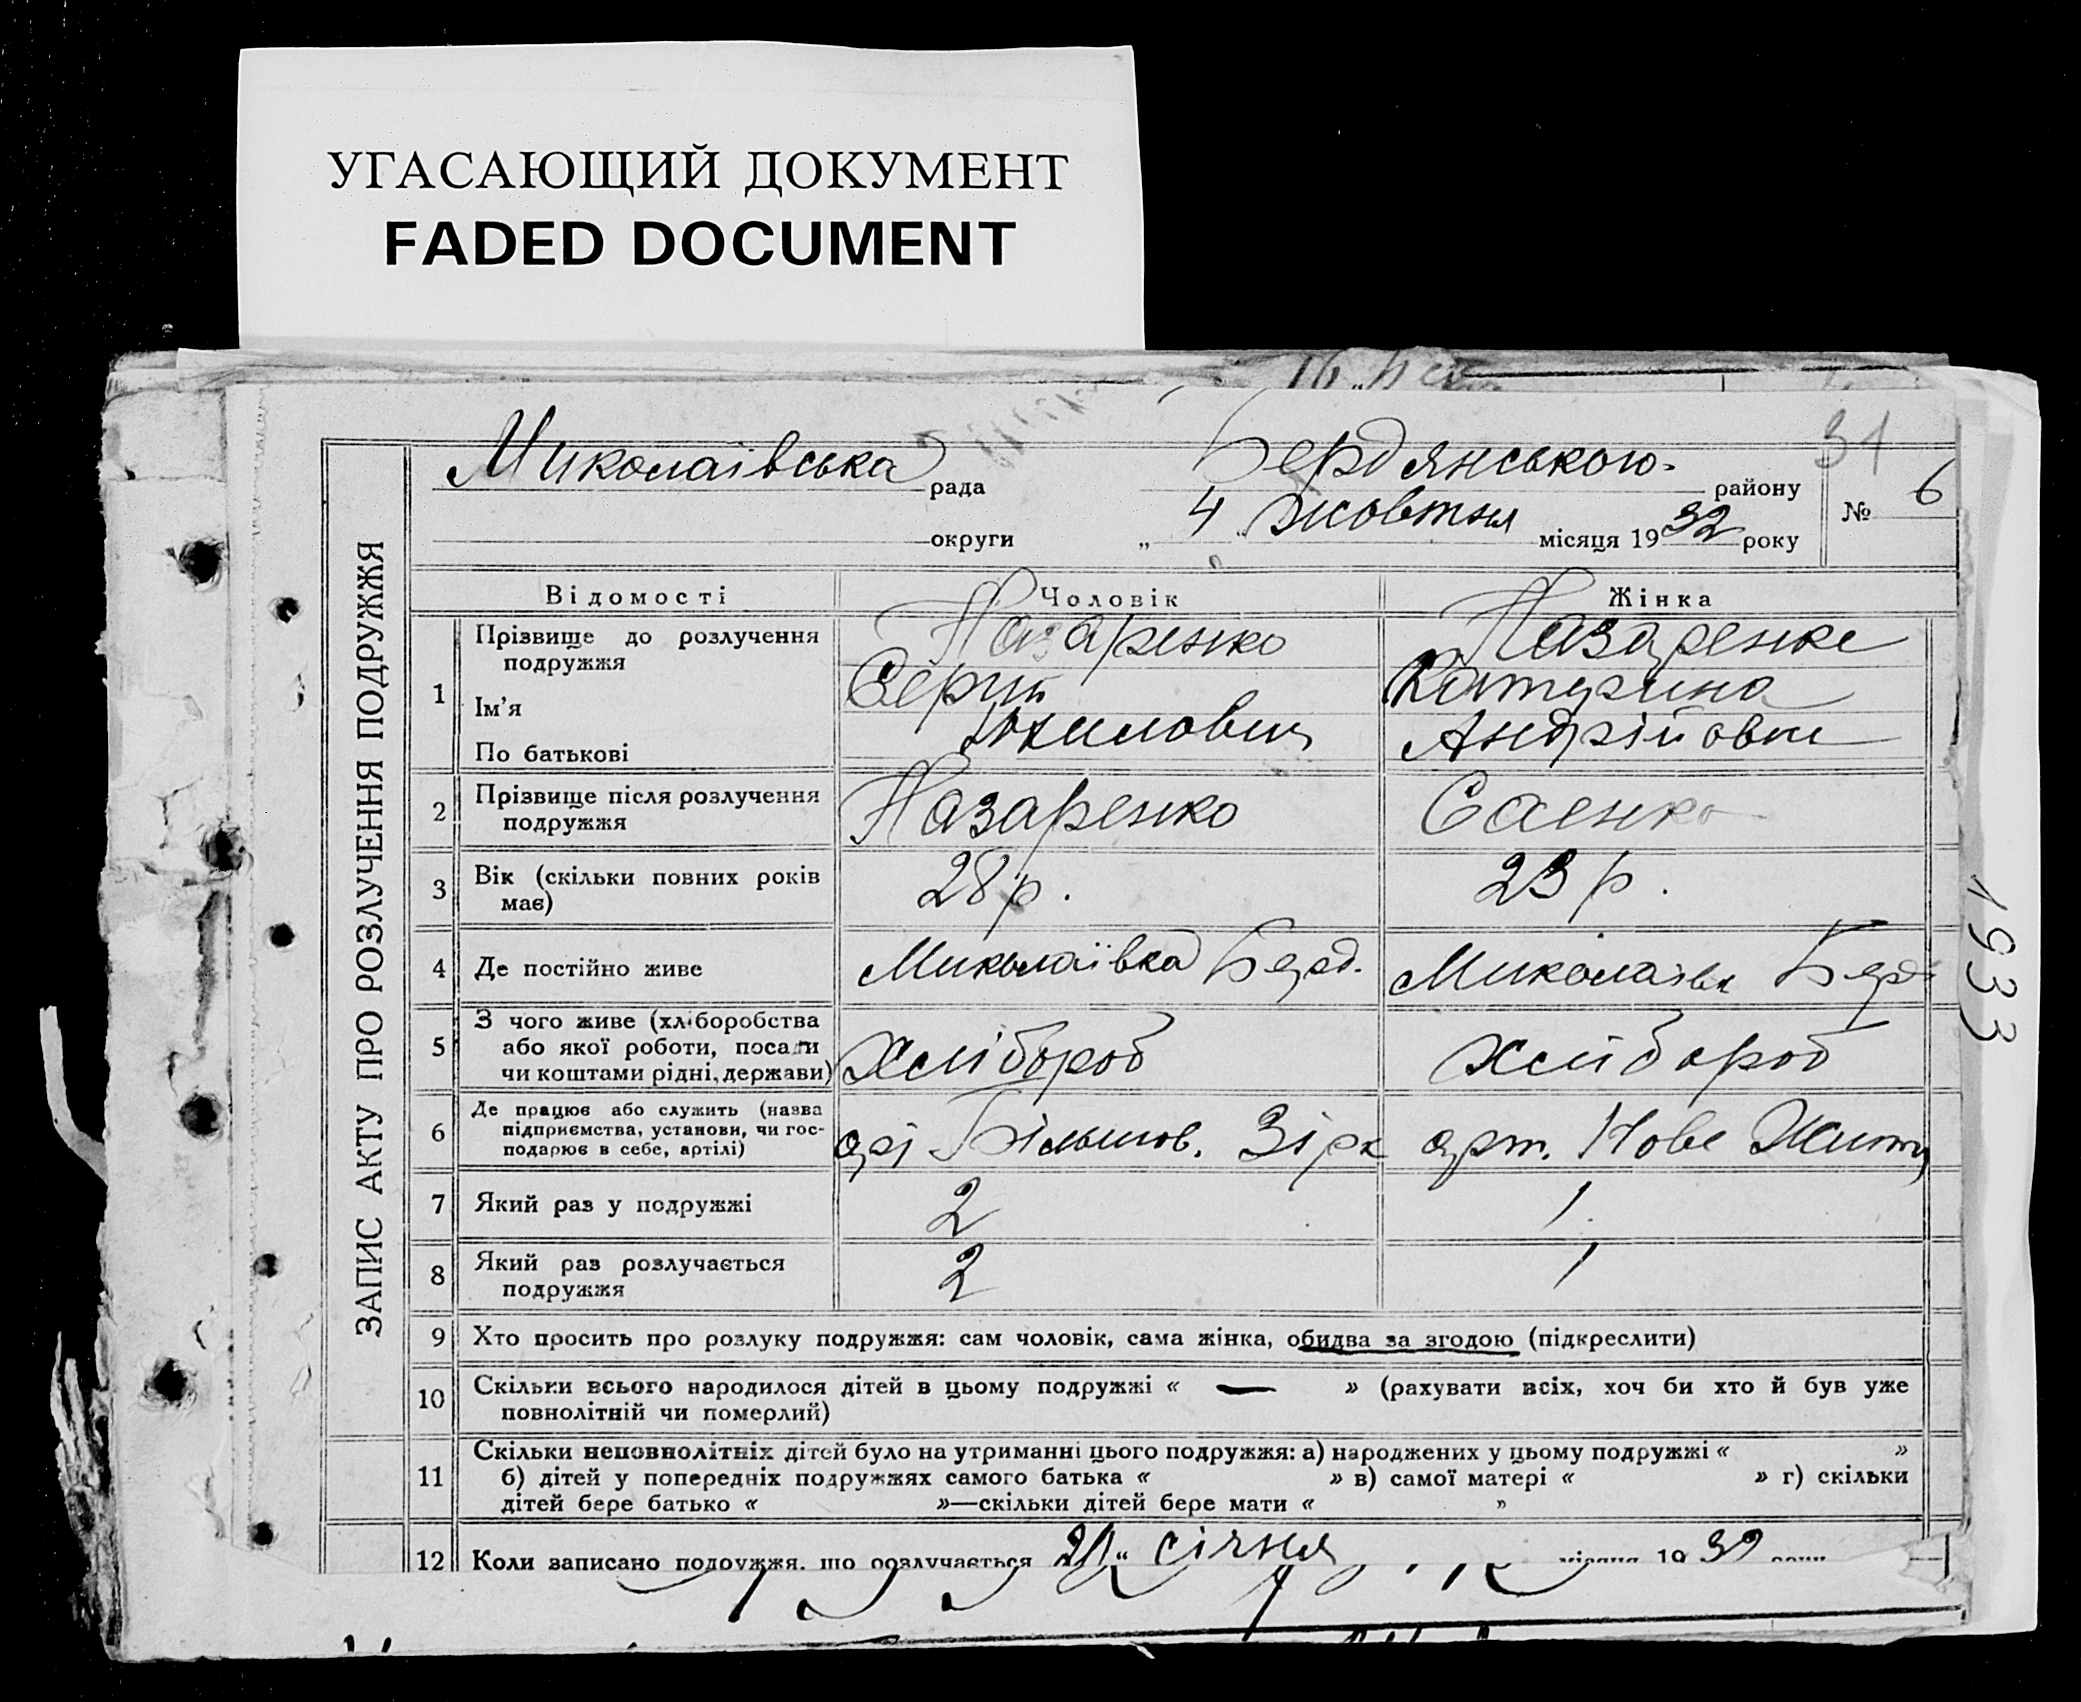 УГАСАЮЩИЙ ДОКУМЕНТ
FADED DOCUMENT
31
Миколаївська рада Бердянською району № 6
округи „ 4 “ жовтня місяця 1932 року
ЗАПИС АКТУ ПРО РОЗЛУЧЕННЯ ПОДРУЖЖЯ
Відомості Чоловік Жінка
1 Прізвище до розлучення подружжя Назаренко Назаренко
Ім'я Сергій Катерина
По батькові Андрійовна
2 Прізвище після розлучення подружжя Назаренко Саенко
3 Вік (скільки повних років має) 28 р. 23 р.
4 Де постійно живе Миколаївка Берд. Миколаївк Берд
5 З чого живе (хліборобства або якої роботи, посади чи коштами рідні, держави) Хлібороб Хлібороб
6 Де працює або служить (назва підприємства, установи, чи господарює в себе, артілі) арт Більшов. Зірк арт. Нове Життя
7 Який раз у подружжі 2 1
8 Який раз розлучається подружжя 2 1
9 Хто просить про розлуку подружжя: сам чоловік, сама жінка, обидва за згодою (підкреслити)
10 Скільки всього народилося дітей в цьому подружжі « — » (рахувати всіх, хоч би хто й був уже
повнолітній чи померлий)
11 Скільки неповнолітніх дітей було на утриманні цього подружжя: а) народжених у цьому подружжі « »
б) дітей у попередніх подружжях самого батька « » в) самої матері « » г) скільки
дітей бере батько « »—скільки дітей бере мати « »
12 Коли записано подружжя, що розлучається січня місяця 1932 року
1933